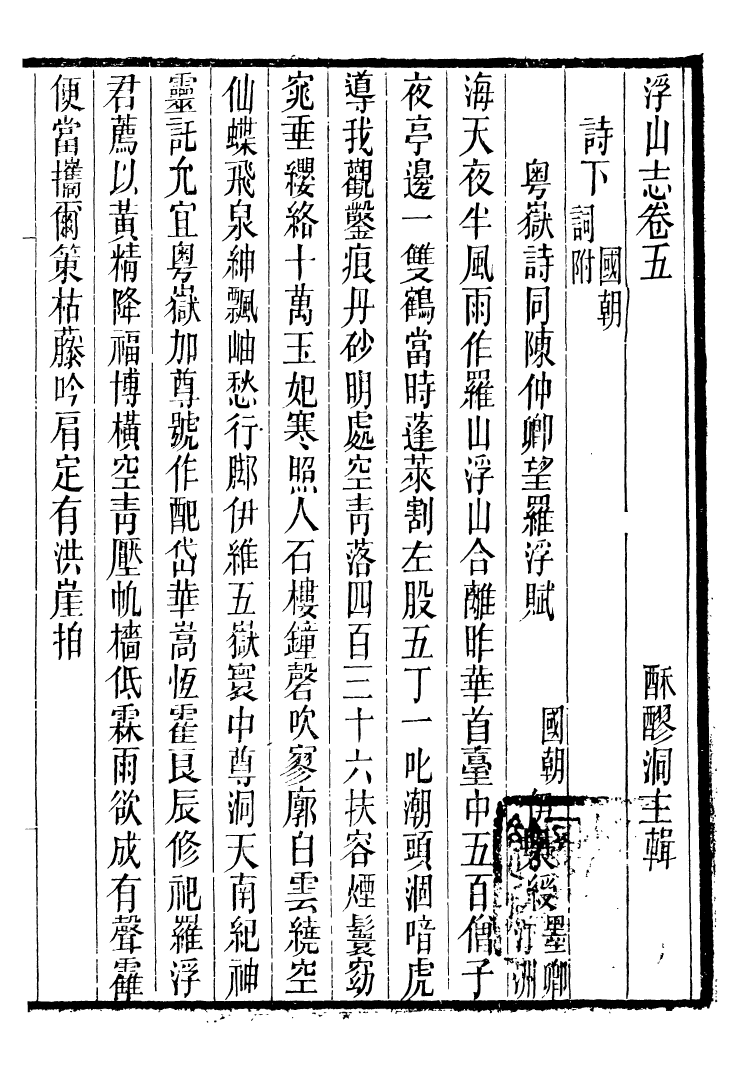 浮山志卷五
酥醪洞主輯
詩下 國朝詞附
粵嶽詩同陳仲卿望羅浮賦 國朝 伊秉綬 墨卿 汀洲
海天夜半風雨作羅山浮山合離昨華首臺中五百僧子
夜亭邊一雙鶴當時蓬萊割左股五丁一叱潮頭涸喑虎
導我觀鑿痕丹砂明處空青落四百三十六扶容煙鬟窈
窕垂纓絡十萬玉妃寒照人石樓鐘磬吹寥廓白雲繞空
仙蝶飛泉紳飄岫愁行腳伊維五嶽寰中尊洞天南紀神
靈託允宜粵嶽加尊號作配岱華嵩恆霍良辰修祀羅浮
君薦以黃精降福博橫空青壓帆檣低霖雨欲成有聲霍
便當攜爾策枯藤吟肩定有洪崖拍